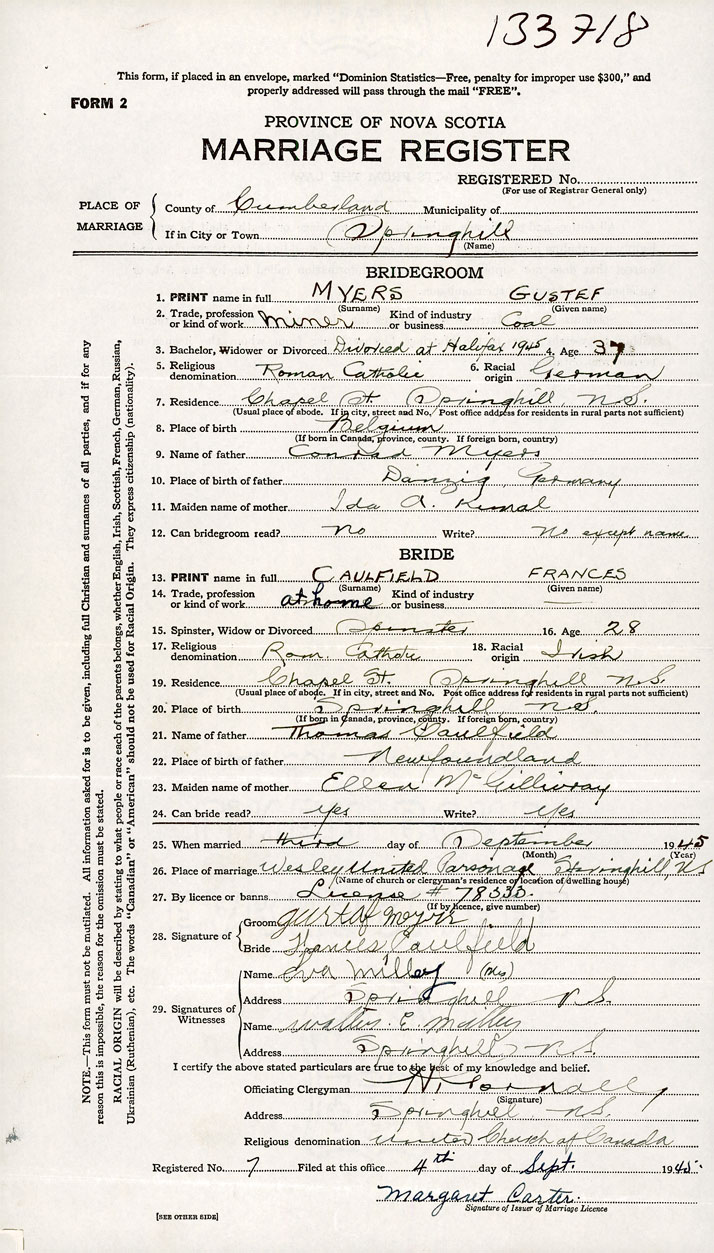 133718
This form, if placed in an envelope, marked “Dominion Statistics—Free, penalty for improper use $300,” and
properly addressed will pass through the mail “FREE”.
FORM 2
PROVINCE OF NOVA SCOTIA
MARRIAGE REGISTER
REGISTERED No.
(For use of Registrar General only)
PLACE OF MARRIAGE
County of Cumberland Municipality of
If in City or Town Springhill
(Name)
BRIDEGROOM
1. PRINT name in full MYERS GUSTEF
(Surname) (Given name)
2. Trade, profession or kind of work miner Kind of industry or business Coal
3. Bachelor, Widower or Divorced Divorced at Halifax 1945 4. Age 37
5. Religious denomination Roman Catholic 6. Racial origin German
7. Residence Chapel St Springhill, N.S.
(Usual place of abode. If in city, street and No. Post office address for residents in rural parts not sufficient)
8. Place of birth Belgium
(If born in Canada, province, county. If foreign born, country)
9. Name of father Conrad Myers
10. Place of birth of father Danzig, Germany
11. Maiden name of mother Ida A.
12. Can bridegroom read? no Write? no except name
BRIDE
13. PRINT name in full CAULFIELD FRANCES
(Surname) (Given name)
14. Trade, profession or kind of work at home Kind of industry or business
15. Spinster, Widow or Divorced Spinster 16. Age 28
17. Religious denomination Rom. Catholic 18. Racial origin Irish
19. Residence Chapel St. Springhill N.S.
(Usual place of abode. If in city, street and No. Post office address for residents in rural parts not sufficient)
20. Place of birth Springhill N.S.
(If born in Canada, province, county. If foreign born, country)
21. Name of father Thomas Caulfield
22. Place of birth of father Newfoundland
23. Maiden name of mother Ellen McGillivray
24. Can bride read? yes Write? yes
25. When married third day of September 1945
(Month) (Year)
26. Place of marriage Wesley United Parsonage Springhill, N.S
(Name of church or clergyman's residence or location of dwelling house)
27. By licence or banns License # 78333.
(If by licence, give number)
28. Signature of
Groom gustaf meyer
Bride Frances Caulfield
29. Signatures of Witnesses
Name Eva Milley (Mrs)
Address Springhill N.S.
Name Walter E.
Address Springhill N.S.
I certify the above stated particulars are true to the best of my knowledge and belief.
Officiating Clergyman
(Signature)
Address Springhill, N.S.
Religious denomination United Church of Canada
Registered No. 7 Filed at this office 4th day of Sept. 1945.
Margaret Carter.
Signature of Issuer of Marriage Licence
[SEE OTHER SIDE]
NOTE.—This form must not be mutilated. All information asked for is to be given, including full Christian and surnames of all parties, and if for any
reason this is impossible, the reason for the omission must be stated.
RACIAL ORIGIN will be described by stating to what people or race each of the parents belongs, whether English, Irish, Scottish, French, German, Russian,
Ukrainian (Ruthenian), etc. The words “Canadian” or “American” should not be used for Racial Origin. They express citizenship (nationality).